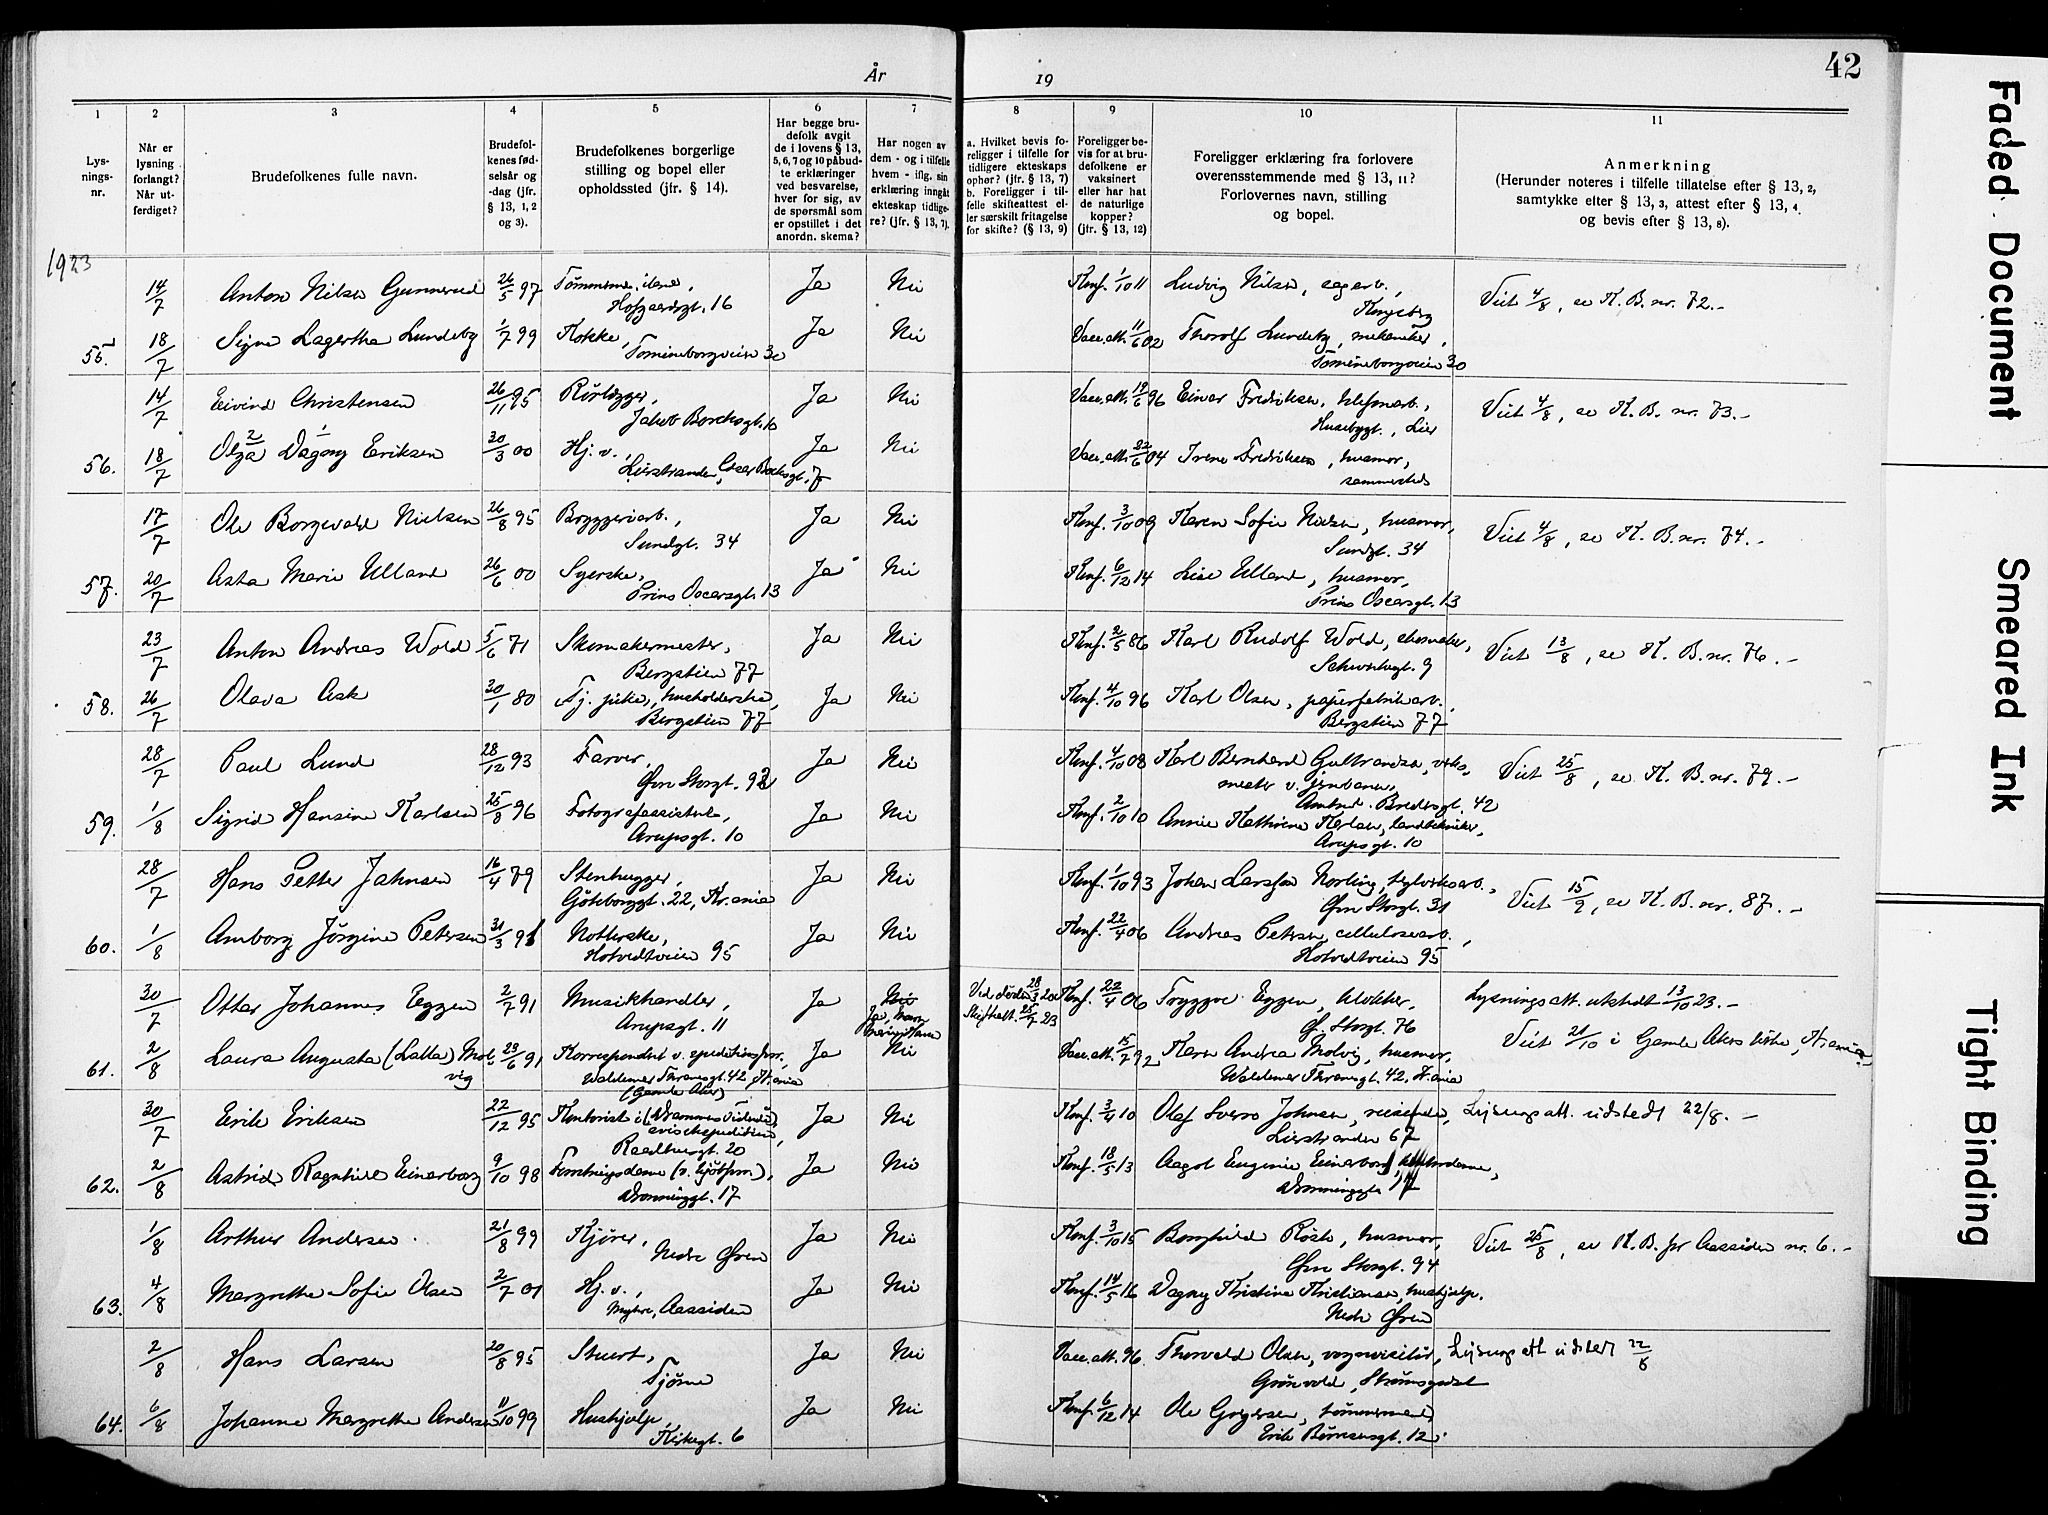 År
19
42
1
2
3
4
5
6
7
8
9
10
11
Lys-
nings-
nr.
Når er
lysning
forlangt?
Når ut-
ferdiget?
Brudefolkenes fulle navn.
Brudefol-
kenes fød-
selsår og
-dag (jfr.
§ 13, 1, 2
og 3).
Brudefolkenes borgerlige
stilling og bopel eller
opholdssted (jfr. § 14).
Har begge bru-
defolk avgit
de i lovens § 13,
5, 6, 7 og 10 påbud-
te erklæringer
ved besvarelse,
hver for sig, av
de spørsmål som
er opstillet i det
anordn. skema?
Har nogen av
dem - og i tilfelle
hvem - iflg. sin
erklæring inngåt
ekteskap tidlige-
re? (jfr. § 13, 7).
a. Hvilket bevis fo-
religger i tilfelle for
tidligere ekteskaps
ophør? (jfr. § 13, 7)
b. Foreligger i til-
felle skifteattest el-
ler særskilt fritagelse
for skifte? (§ 13, 9)
Foreligger be-
vis for at bru-
defolkene er
vaksinert
eller har hat
de naturlige
kopper?
(jfr. § 13, 12)
Foreligger erklæring fra forlovere
overensstemmende med § 13, 11?
Forlovernes navn, stilling
og bopel.
Anmerkning
(Herunder noteres i tilfelle tillatelse efter § 13, 2,
samtykke efter § 13, 3, attest efter § 13, 4
og bevis efter § 13, 8).
1923
14/7 Anton Nilsen Gunnerud 26/5 97 Ja Nei Konf. 1/10 11 Ludvig Nilsen, sagarb., Viet 4/8, se K. B. nr. 72.-
Hofgaardsgt. 16 Kongsberg
55. 18/7 Signe Lagertha Lundeby 1/7 99 Kokke, Ja Nei Vacc.att. 11/6 02 Thorolf Lundeby, mekaniker,
Tømmeborgveien 30 Tømmeborgveien 30
14/7 Eivind Christensen 26/11 95 Rørlegger, Ja Nei Vacc.att. 19/6 96 Einar Fredriksen, Viet 4/8, se K. B. nr. 73.-
Jakob Borchsgt. 10 Husebygt., Lier
56. 18/7 Olga 2 Dagny 1 Eriksen 30/3 00 Hj. v., Ja Nei Vacc.att. 04 Irene Fredriksen, husmor,
Lierstranden, 7 sammesteds
17/7 Ole Borgevald Nielsen 26/8 95 Bryggeriarb., Ja Nei Konf. 3/10 09 Karen Sofie Nielsen, husmor, Viet 4/8, se K. B. nr. 74.-
Sundgt. 34 Sundgt. 34
57. 20/7 Asta Marie Ulland 26/6 00 Syerske, Ja Nei Konf. 6/12 14 Lise Ulland, husmor,
Prins Oscarsgt. 13 Prins Oscarsgt. 13
23/7 Anton Andreas Wold 5/6 71 Skomakermester, Ja Nei Konf. 2/5 86 Karl Rudolf Wold, skomaker, Viet 13/8, se K. B. nr. 76.-
Bergstien 77 Schwartzgt. 9
58. 26/7 Olava Ask 30/1 80 Tj. pike, husholderske, Ja Nei Konf. 4/10 96 Karl Olsen, papirfabrikarb.,
Bergstien 77 Bergstien 77
28/7 Paul Lund 28/12 93 Farver, Ja Nei Konf. 4/10 08 Karl Bernhard Gulbrandsen, verks- Viet 25/8, se K. B. nr. 79.-
Øvre Storgt. 92 mester v. jernbanen,
Amtmd. Bredersgt. 42
59. 1/8 Sigrid Hansine Karlsen 25/8 96 Fotografassistent, Ja Nei Konf. 2/10 10 Annie Kathrine Karlsen, tandtekniker,
Arupsgt. 10 Arupsgt. 10
28/7 Hans Petter Jahnsen 16/4 79 Stenhugger, Ja Nei Konf. 1/10 93 Johan Larsson Norling, teglverksarb., Viet 15/9, se K. B. nr. 87.-
Göteborggt. 22, Kr.ania Øvre Storgt. 31
60. 1/8 Amborg Jørgine Petersen 31/3 91 Ja Nei Konf. 22/4 06 Andreas Petersen, cellulosearb.,
Hotvedtveien 95 Hotvedtveien 95
30/7 Ottar Johannes Eggen 2/7 91 Musikhandler, Ja Nei Konf. 22/4 06 Tryggve Eggen, klokker, Lysningsatt. utstedt 13/10 23.-
Arupsgt. 11 Ø. Storgt. 76
Viet 21/10 i Gamle Akers kirke, Kr.ania
61. 2/8 Laura Augusta (Lalla) Mol- 23/6 91 Korrespondent v. Ja Nei Vacc.att. 15/7 92 Karen Andrea Molvig, husmor,
vig Waldemar Thranesgt. 42, Kr.ania Waldemar Thranesgt. 42, Kr.ania
(Gamle Aker)
30/7 Erik Eriksen 22/12 95 Kontorist i (Drammens Tidende, Ja Nei Konf. 3/4 10 Olaf Sverre Johnsen, reisende, Lysningsatt. udstedt 22/8.-
avisekspedition, Lierstranden 67
Raadhusgt. 20
62. 2/8 Astrid Ragnhild Einarborg 9/10 98 Forretningsdame Ja Nei Konf. 18/5 13 Aagot Eugenie Einarborg,
Dronninggt. 17 Dronninggt. 17
1/8 Arthur Andersen 21/8 99 Kjører, Ja Nei Konf. 3/10 15 Borghild Røsh, husmor, Viet 25/8, se K. B. for Aassiden nr. 6.-
Nedre Øren Øvre Storgt. 94
63. 4/8 Margrethe Sofie Olsen 2/7 01 Hj. v., Ja Nei Konf. 14/5 16 Dagny Kristine Kristiansen, hushjelp.
Myhre, Aassiden Nedre Øren
2/8 Hans Larsen 20/8 95 Stuert, Ja Nei Vacc.att. 96. Thorvald Olsen, vognvisitør, Lysningsatt udstedt 22/8
Tjøme Grønvold, Strømsgodset
64. 6/8 Johanne Margrethe Andersen 11/10 99 Hushjelp, Ja Nei Konf. 6/12 14 Ole Gregersen, tømmermand,
Kirkegt. 6 Erik Børresensgt. 12.
Faded Document
Smeared Ink
Tight Binding